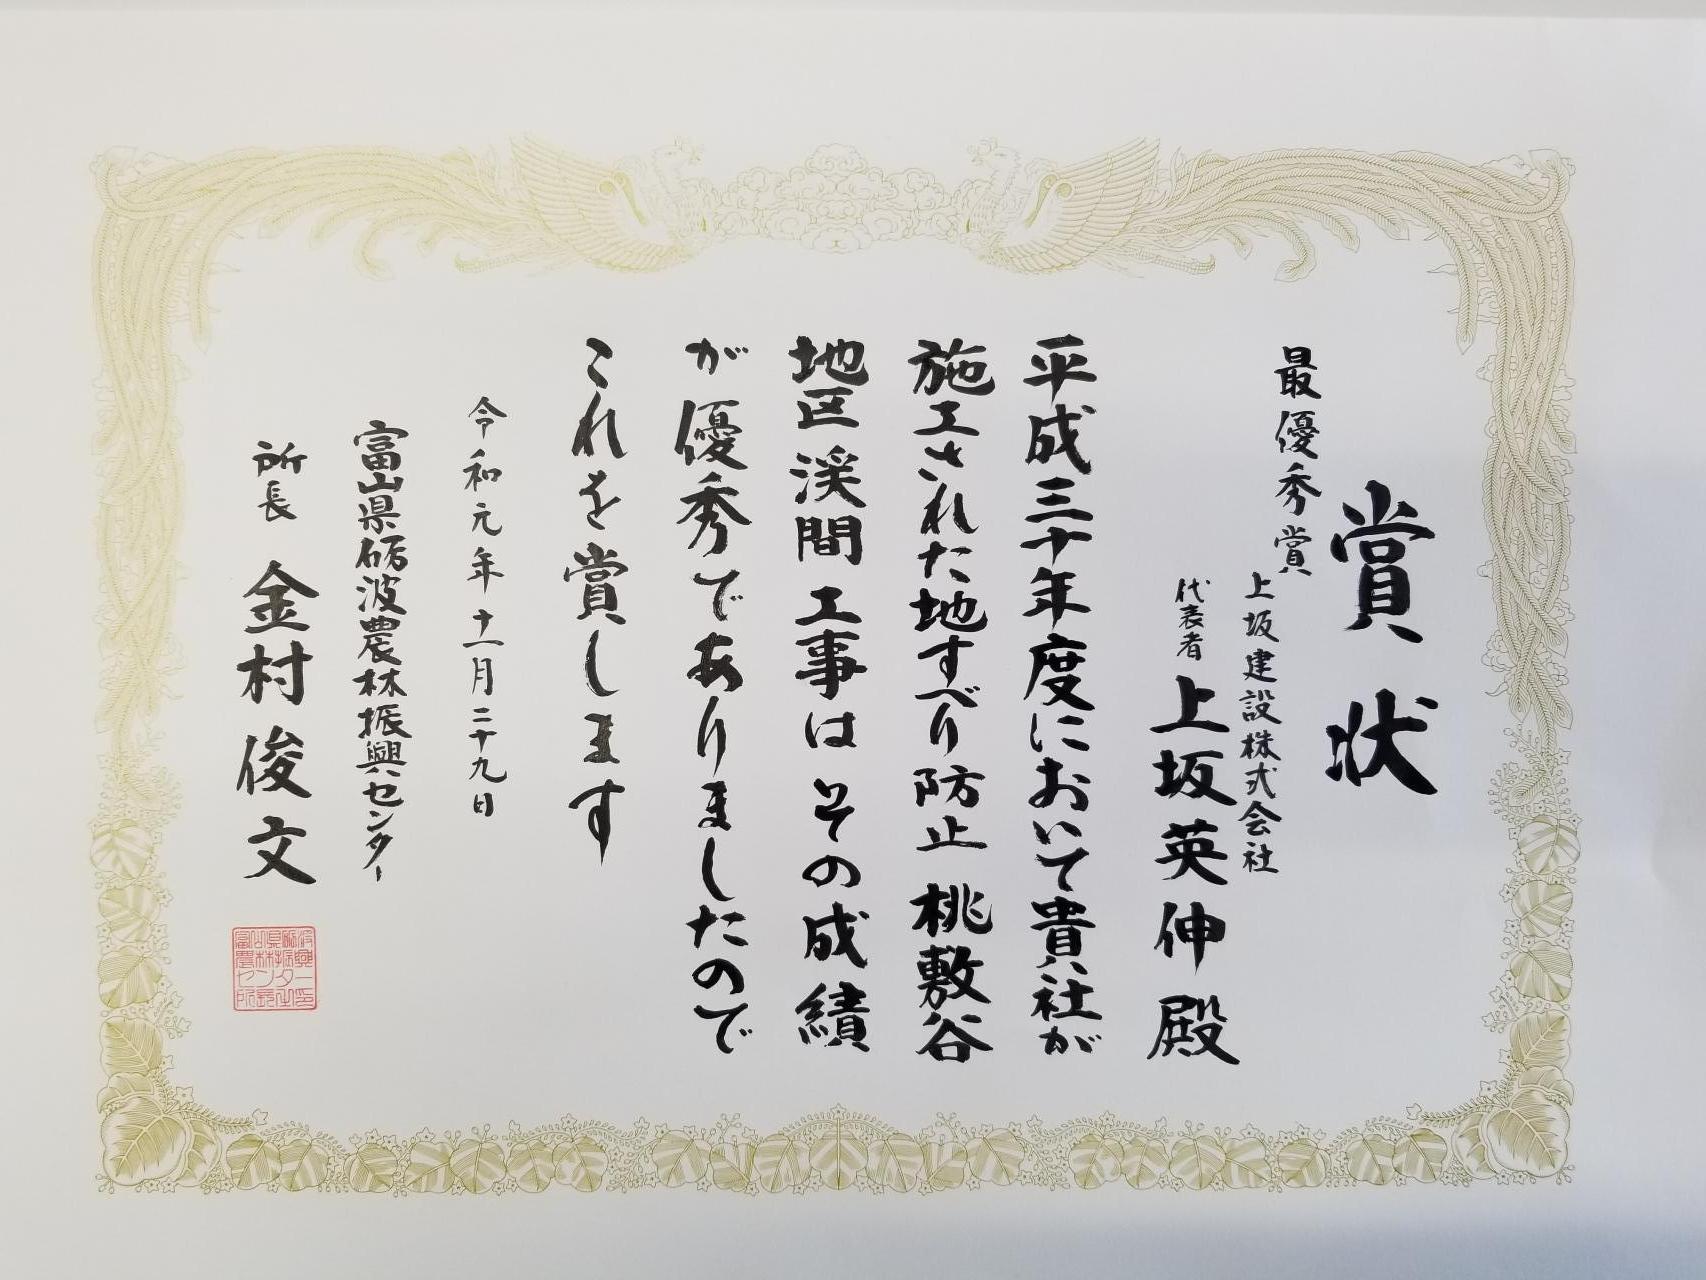 賞状
最優秀賞
上坂建設株式会社
代表者 上坂英伸殿
平成三十年度において貴社が
施工された地すべり防止 桃敷谷
地区 渓間工事はその成績
が優秀でありましたので
これを賞します
令和元年十一月二十九日
富山県砺波農林振興センター
所長 金村俊文